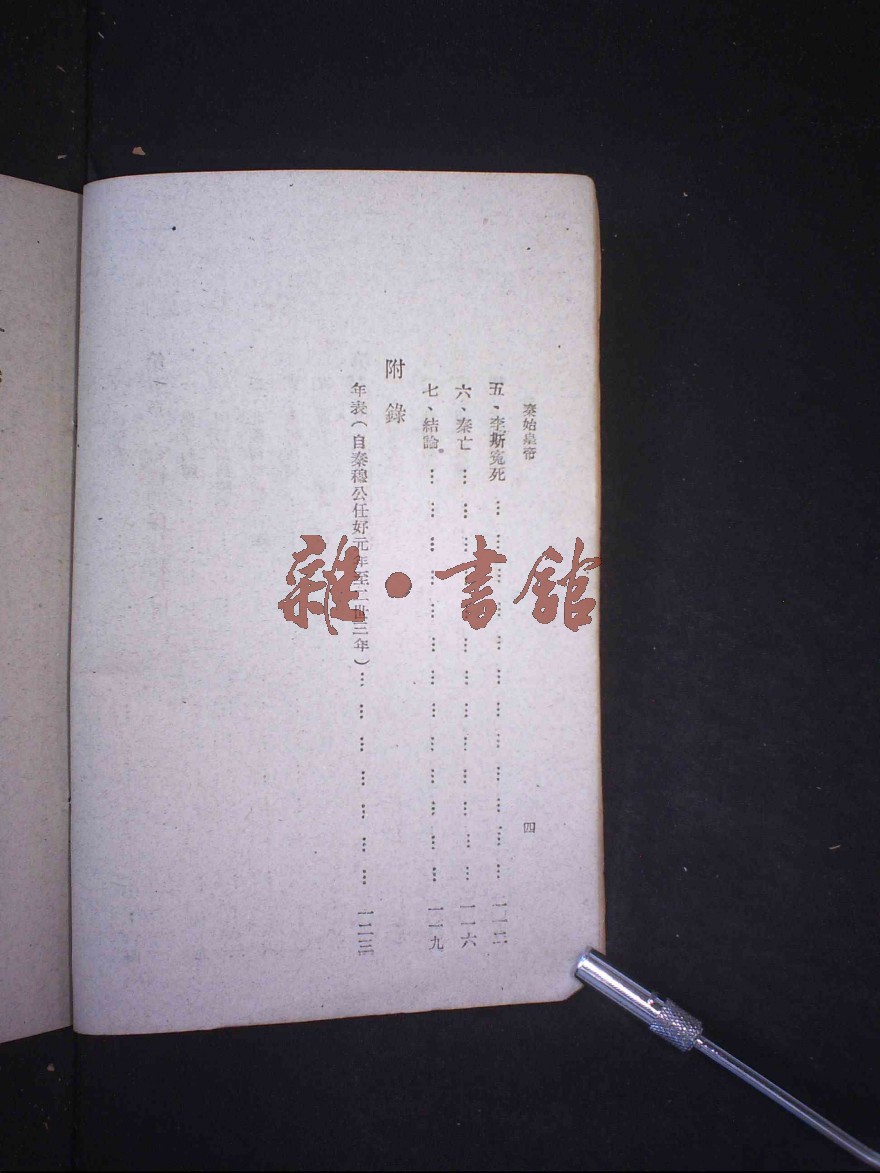 秦始皇帝
四
五、李斯冤死 … … … … … … … … … … … … 一一三
六、秦亡 … … … … … … … … … … … … … 一一六
七、結論 … … … … … … … … … … … … … 一一九
附錄
年表(自秦穆公任好元年至二世三年)… … … … … … … 一二三
雜·書館